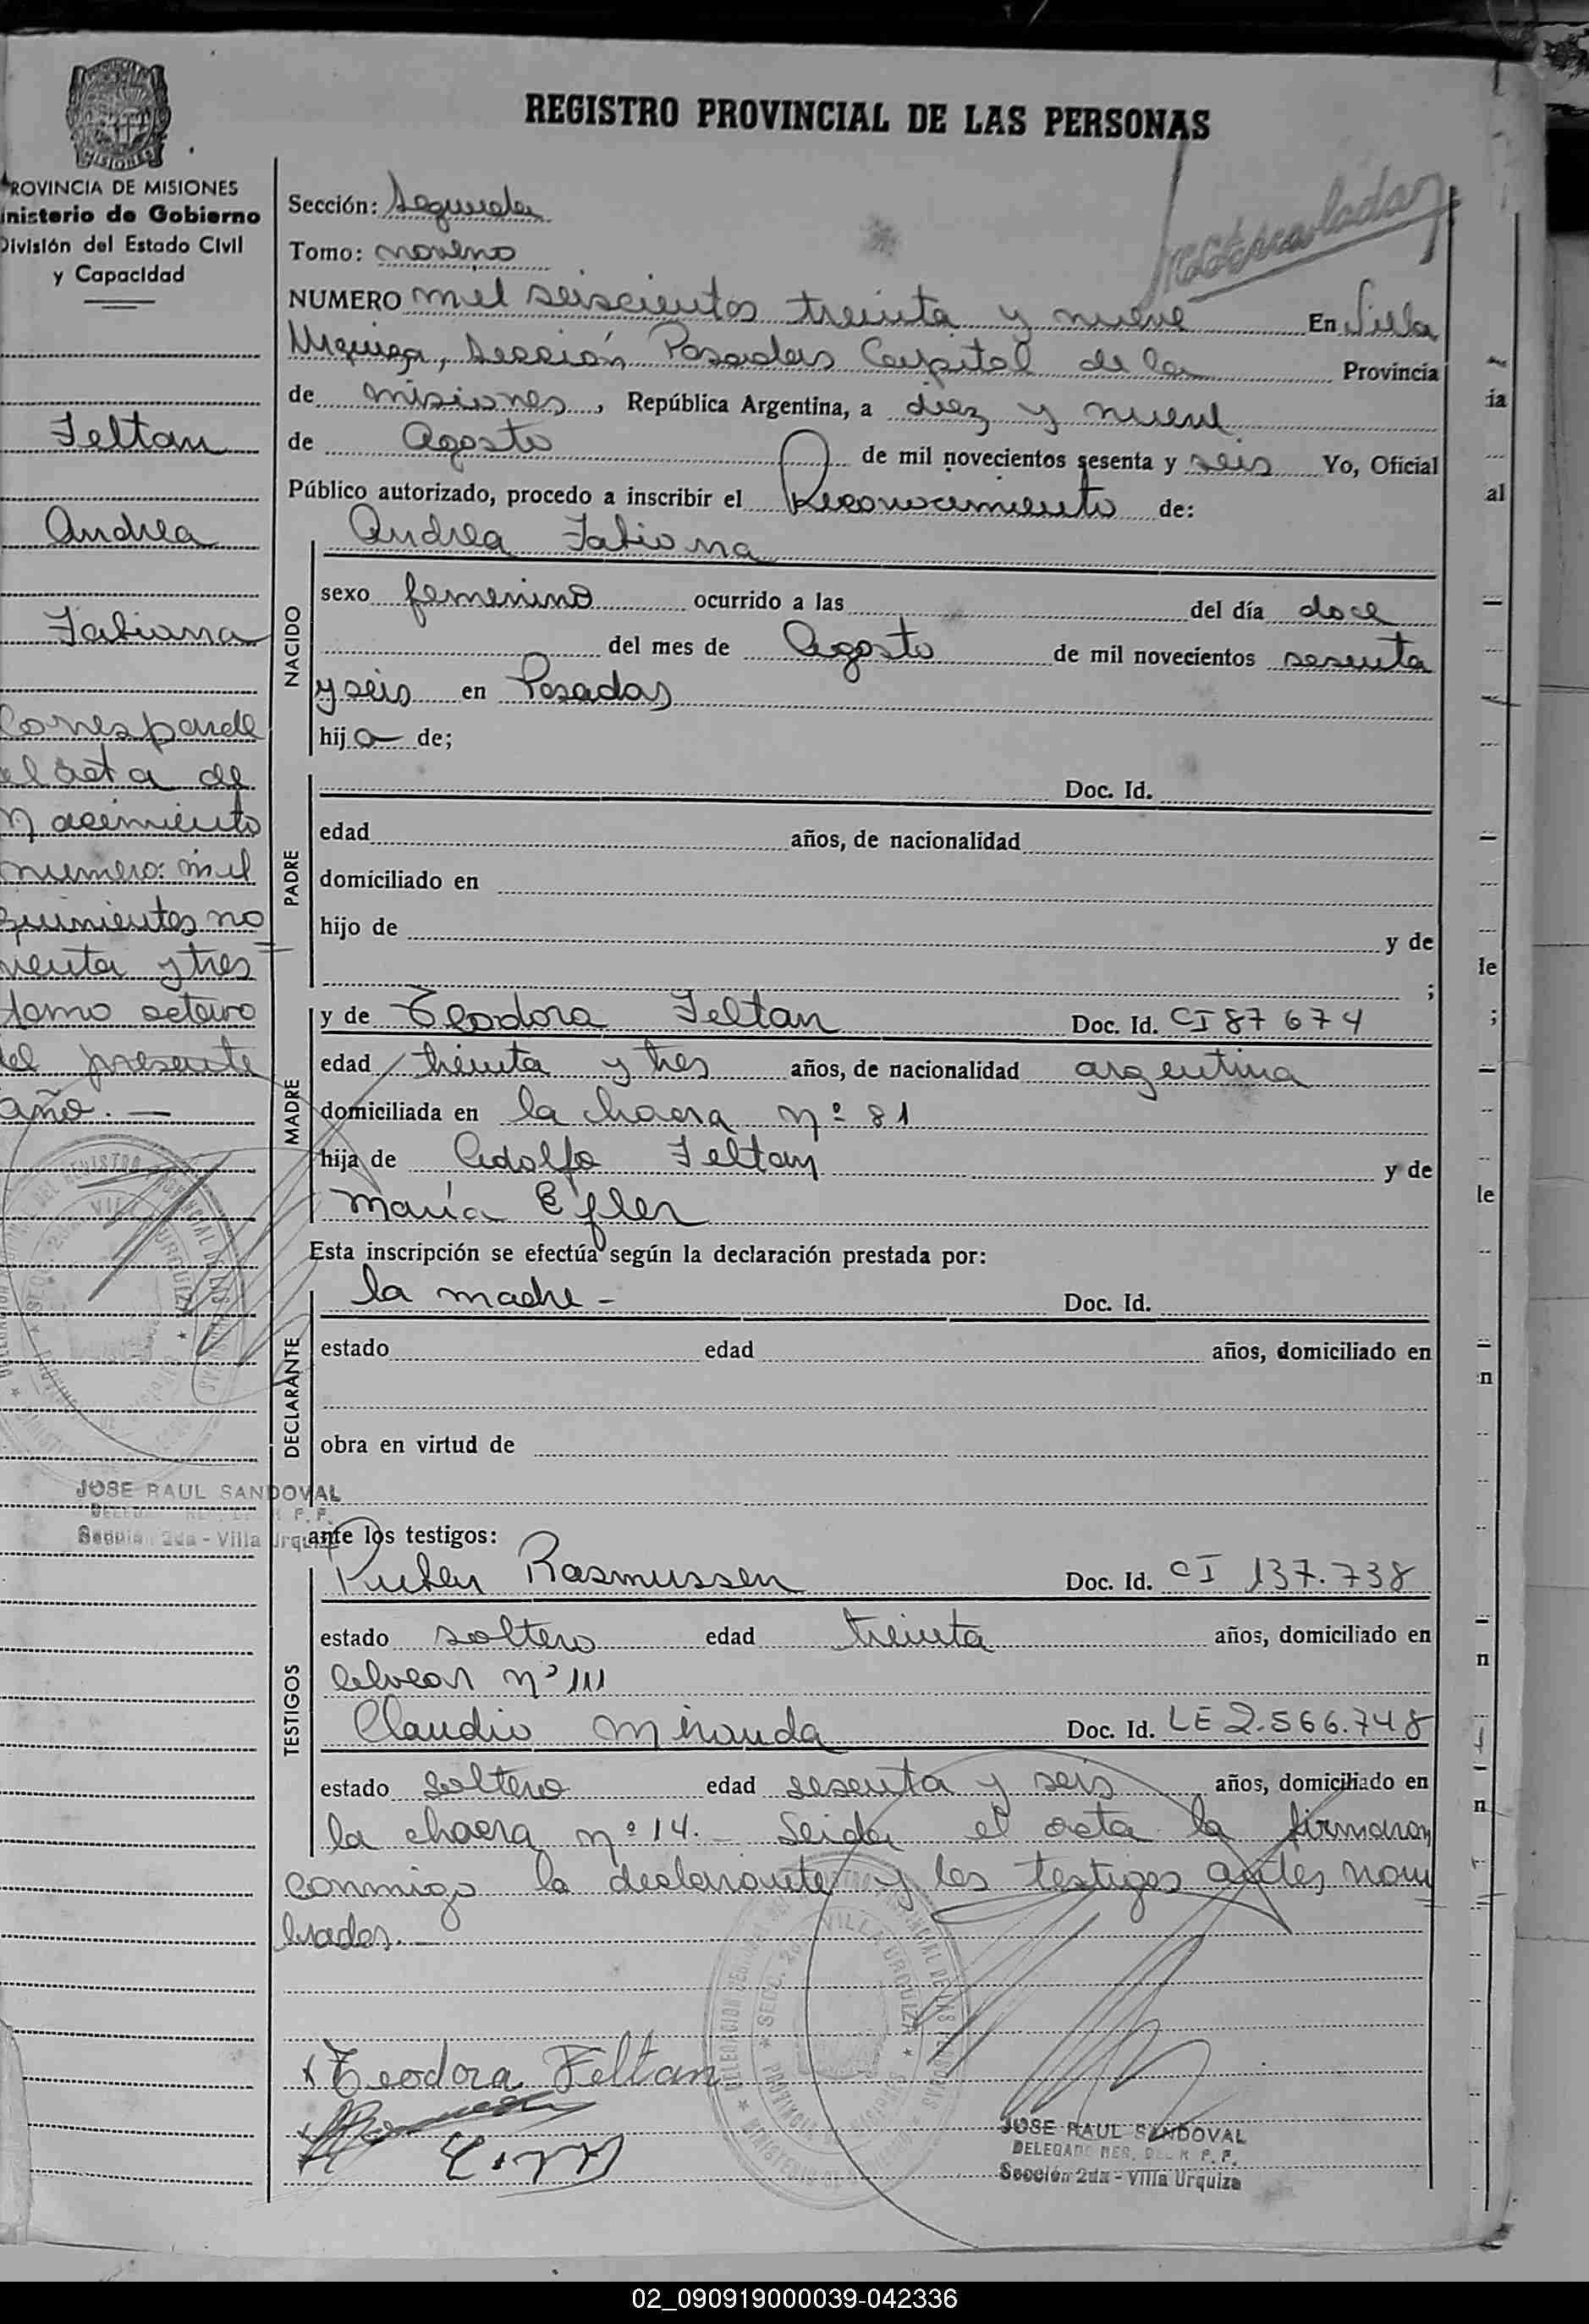 REGISTRO PROVINCIAL DE LAS PERSONAS
MISIONES
ROVINCIA DE MISIONES
inisterio de Gobierno
División del Estado Civil
y Capacidad
Feltan
Andrea
Fabiana
Corresponde
el acta de
Nacimiento
numero: mil
quinientos no
venta y tres
tomo octavo
el presente
año. —
JOSE RAUL SANDOVAL
Sección 2da - Villa Urquiza
Sección: Segunda
Tomo: noveno
NUMERO mil seiscientos treinta y nueve En Villa
Urquiza, Sección Posadas Capital de la Provincia
de misiones, República Argentina, a diez y nueve
de Agosto de mil novecientos sesenta y seis Yo, Oficial
Público autorizado, procedo a inscribir el Reconocimiento de:
Andrea Fabiana
NACIDO
sexo femenino ocurrido a las del día doce
del mes de Agosto de mil novecientos sesenta
y seis en Posadas
hija de;
PADRE
Doc. Id.
edad años, de nacionalidad
domiciliado en
hijo de y de
;
MADRE
y de Teodora Feltan Doc. Id. CI 87674
edad treinta y tres años, de nacionalidad argentina
domiciliada en la chacra Nº 81
hija de Adolfo Feltan y de
María Efler
Esta inscripción se efectúa según la declaración prestada por:
DECLARANTE
la madre - Doc. Id.
estado edad años, domiciliado en
obra en virtud de
ante los testigos:
TESTIGOS
Ruben Rasmussen Doc. Id. CI 137.738
estado soltero edad treinta años, domiciliado en
Alvear Nº 111
Claudio Miranda Doc. Id. LE 2.566.748
estado soltero edad sesenta y seis años, domiciliado en
la chacra nº 14. - Leida el acta la firmaron
conmigo la declarante y los testigos antes nom
brados. —
x Teodora Feltan
JOSE RAUL SANDOVAL
Sección 2da - Villa Urquiza
02_090919000039-042336